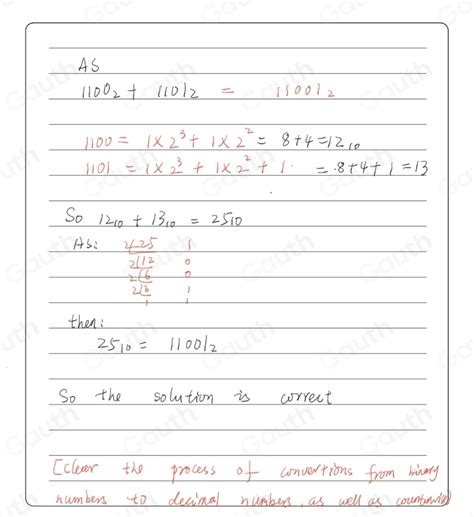 As
1100₂ + 1101₂ = 11001₂
1100 = 1×2³ + 1×2² = 8+4=12₁₀
1101 = 1×2³ + 1×2² + 1. = 8+4+1=13
So 12₁₀ + 13₁₀ = 25₁₀
As: 2 25 1
2 12 0
2 6 0
2 3 1
1 1
then:
25₁₀ = 11001₂
So the solution is correct
[clear the process of convertions from binary
numbers to decimal numbers, as well as
Gauth